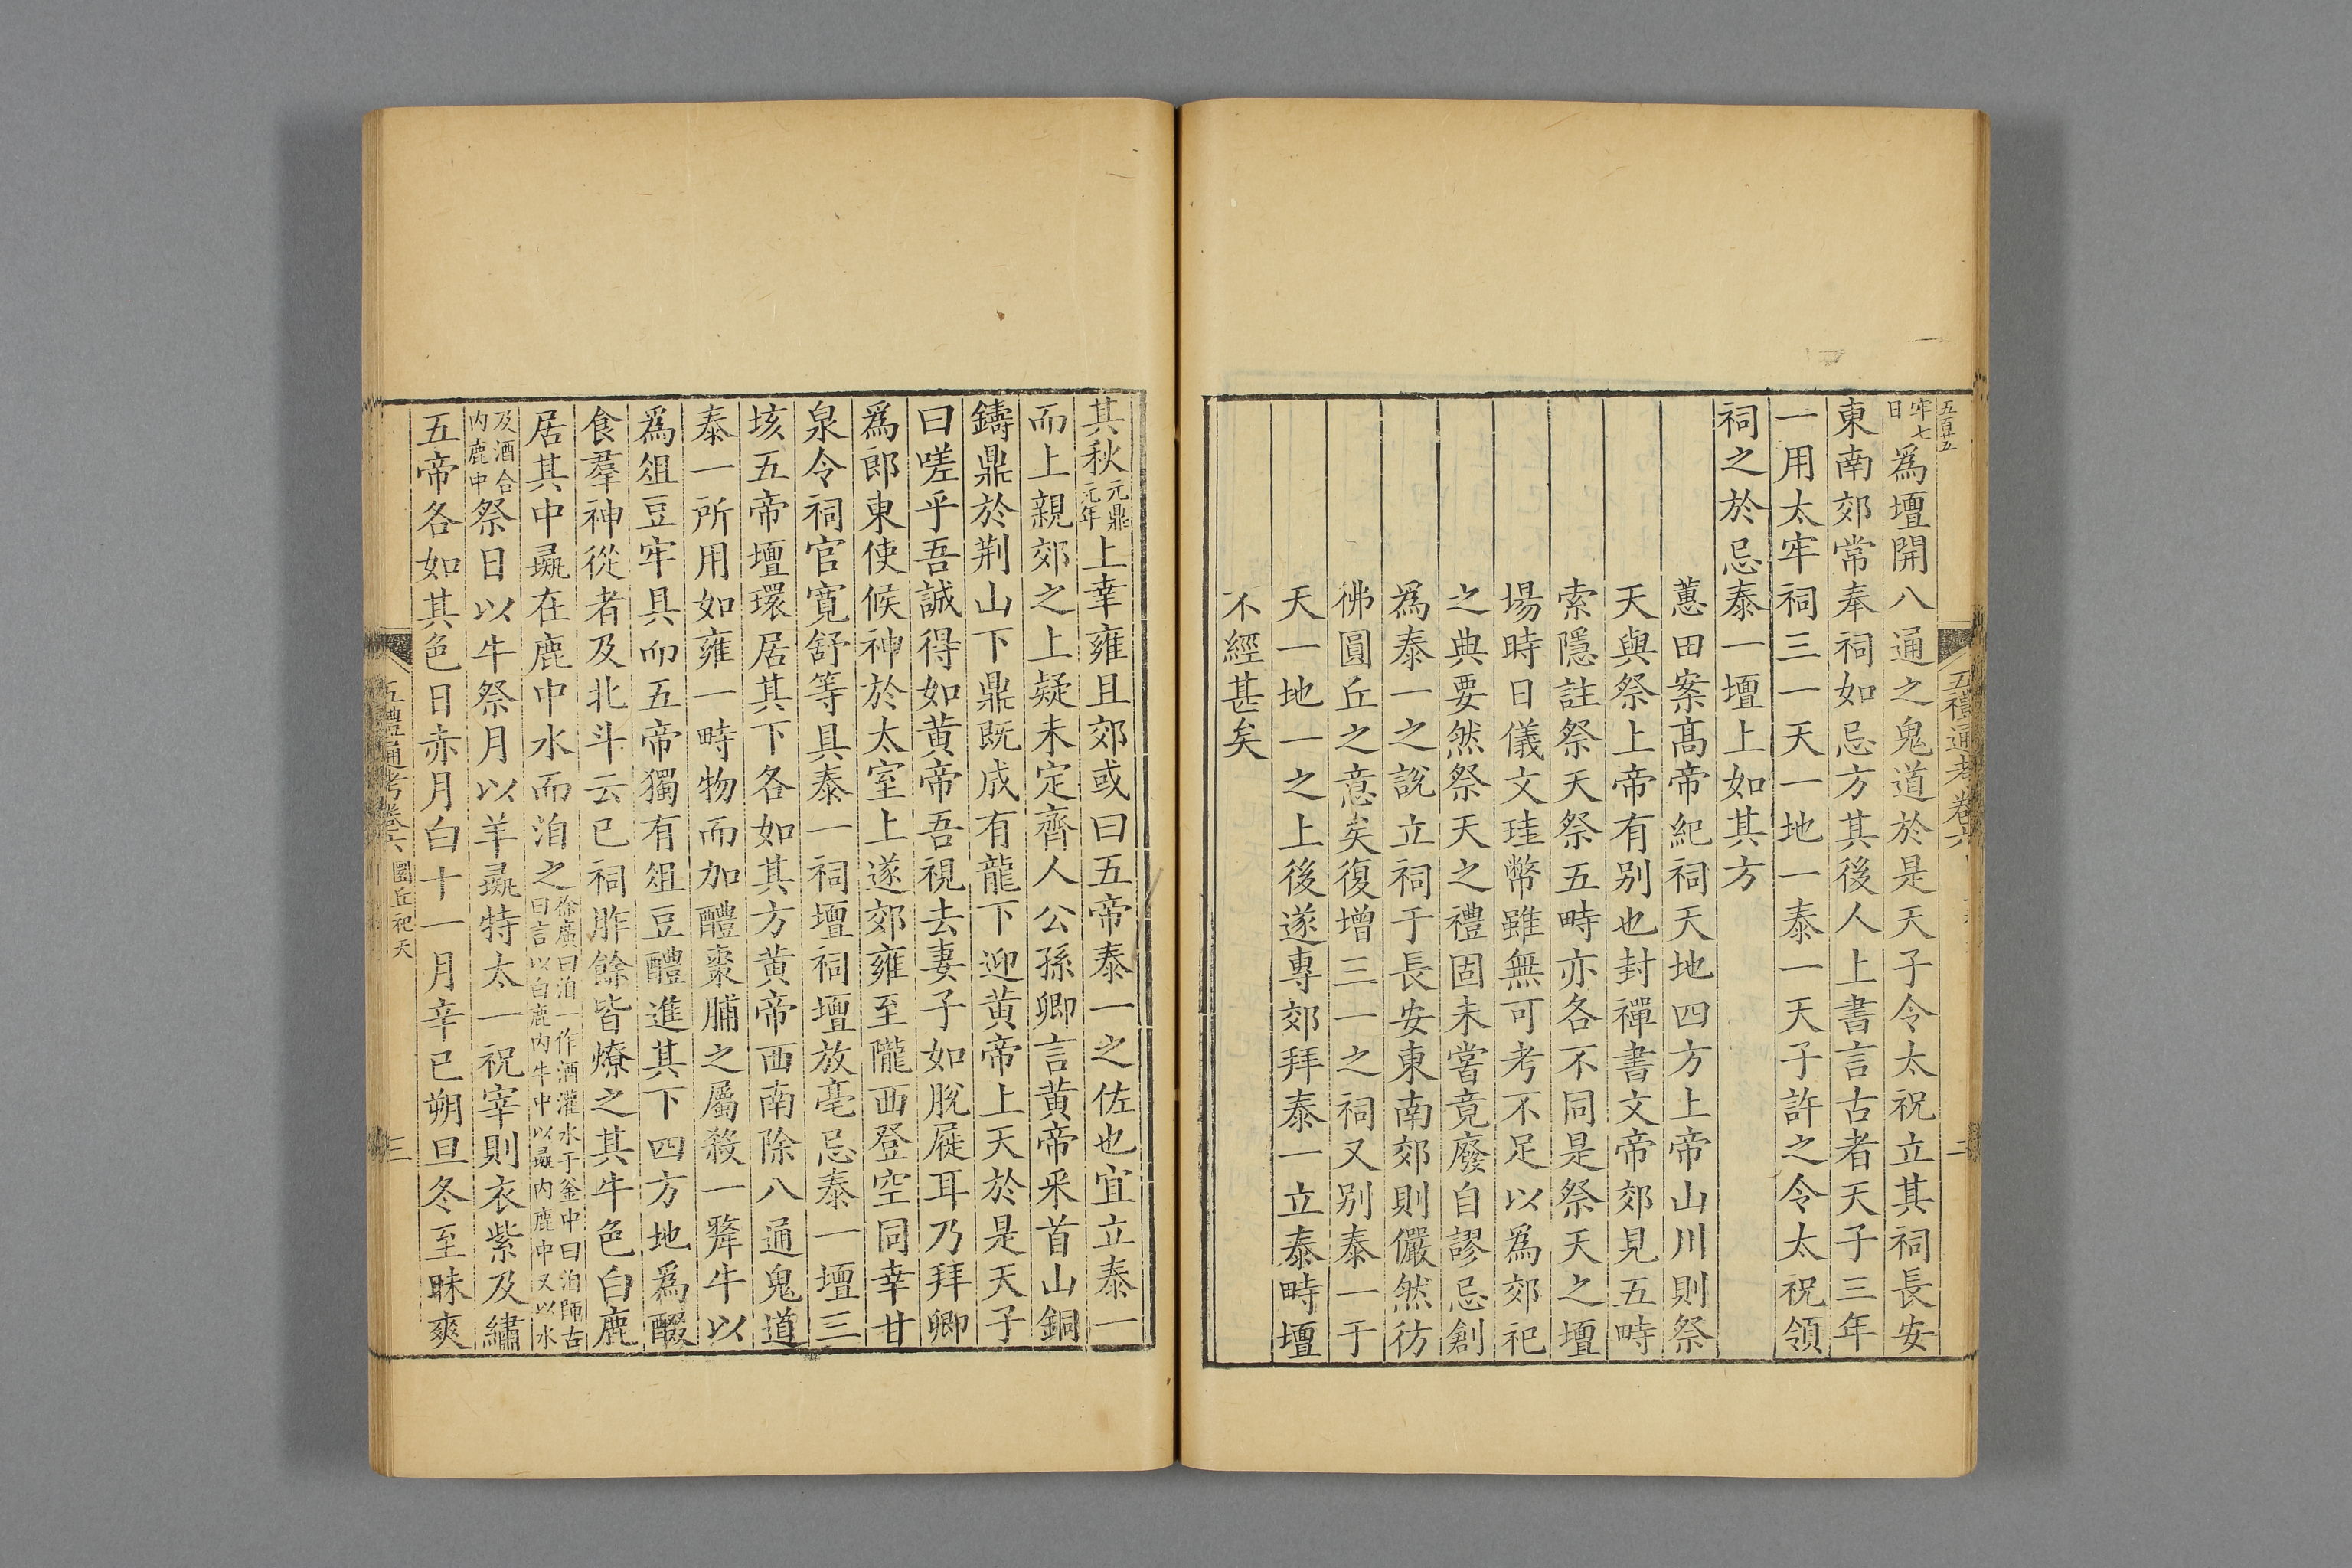 五百廿五
五禮通考卷六 二
牢七日爲壇開八通之鬼道於是天子令太祝立其祠長安
東南郊常奉祠如忌方其後人上書言古者天子三年
一用太牢祠三一天一地一泰一天子許之令太祝領
祠之於忌泰一壇上如其方
蕙田案高帝紀祠天地四方上帝山川則祭
天與祭上帝有别也封禪書文帝郊見五畤
索隱註祭天祭五畤亦各不同是祭天之壇
場時日儀文珪幣雖無可考不足以爲郊祀
之典要然祭天之禮固未嘗竟廢自謬忌創
爲泰一之說立祠于長安東南郊則儼然彷
彿圓丘之意矣復增三一之祠又别泰一于
天一地一之上後遂專郊拜泰一立泰畤壇
不經甚矣
其秋元鼎元年上幸雍且郊或曰五帝泰一之佐也宜立泰一
而上親郊之上疑未定齊人公孫卿言黄帝釆首山銅
鑄鼎於荆山下鼎既成有龍下迎黄帝上天於是天子
曰嗟乎吾誠得如黄帝吾視去妻子如脫屣耳乃拜卿
爲郎東使候神於太室上遂郊雍至隴西登空同幸甘
泉令祠官寬舒等具泰一祠壇祠壇放亳忌泰一壇三
垓五帝壇環居其下各如其方黄帝西南除八通鬼道
泰一所用如雍一畤物而加醴棗脯之屬殺一犛牛以
爲俎豆牢具而五帝獨有俎豆醴進其下四方地爲醊
食羣神從者及北斗云已祠胙餘皆燎之其牛色白鹿
居其中彘在鹿中水而洎之徐廣曰洎一作酒灌水于釜中曰洎師古曰言以白鹿内牛中以彘内鹿中又以水
及酒合内鹿中祭日以牛祭月以羊彘特太一祝宰則衣紫及繡
五帝各如其色日赤月白十一月辛巳朔旦冬至昧爽
五禮通考卷六 圜丘祀天 三